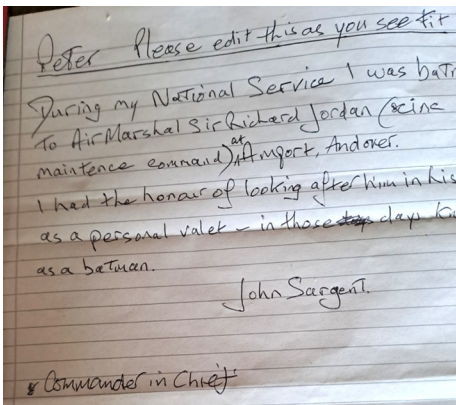 Peter Please edit this as you see fit
During my National Service I was batm
To Air Marshal Sir Richard Jordan (&cinc
maintence command) at Amport, Andover.
I had the honour of looking after him in his
as a personal valet - in those days
as a batman.
John Sargent.
& Commander in Chief